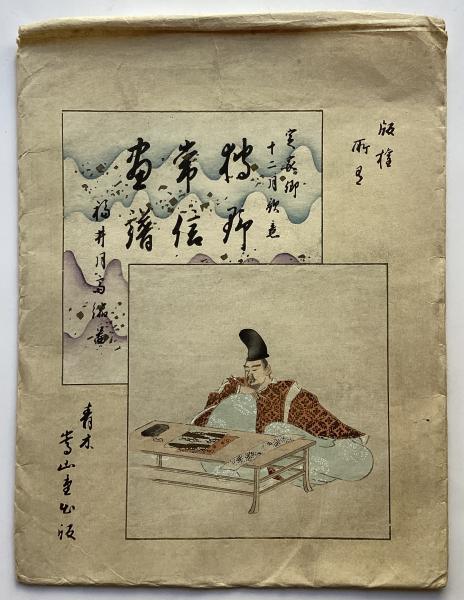 版権
所有
定家卿
十二月歌意
狩野
常信
畫譜
福井月斎縮圖
青木
嵩山堂出版